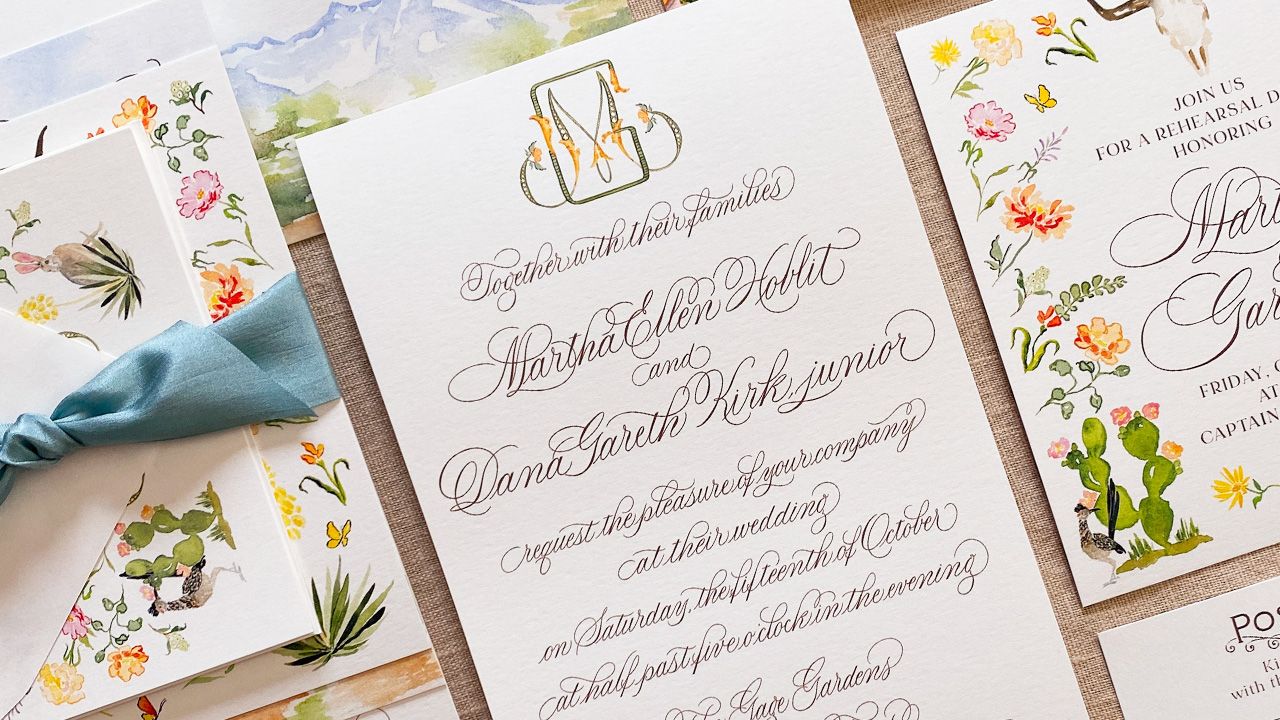 Together with their families
Martha Ellen Hoblit
and
Dana Gareth Kirk, junior
request the pleasure of your company
at their wedding
on Saturday, the fifteenth of October
at half past five o'clock in the evening
The Gage Gardens
JOIN US
FOR A REHEARSAL D
HONORING
Mar
Gar
FRIDAY,
AT
CAPTAIN
PO
with th